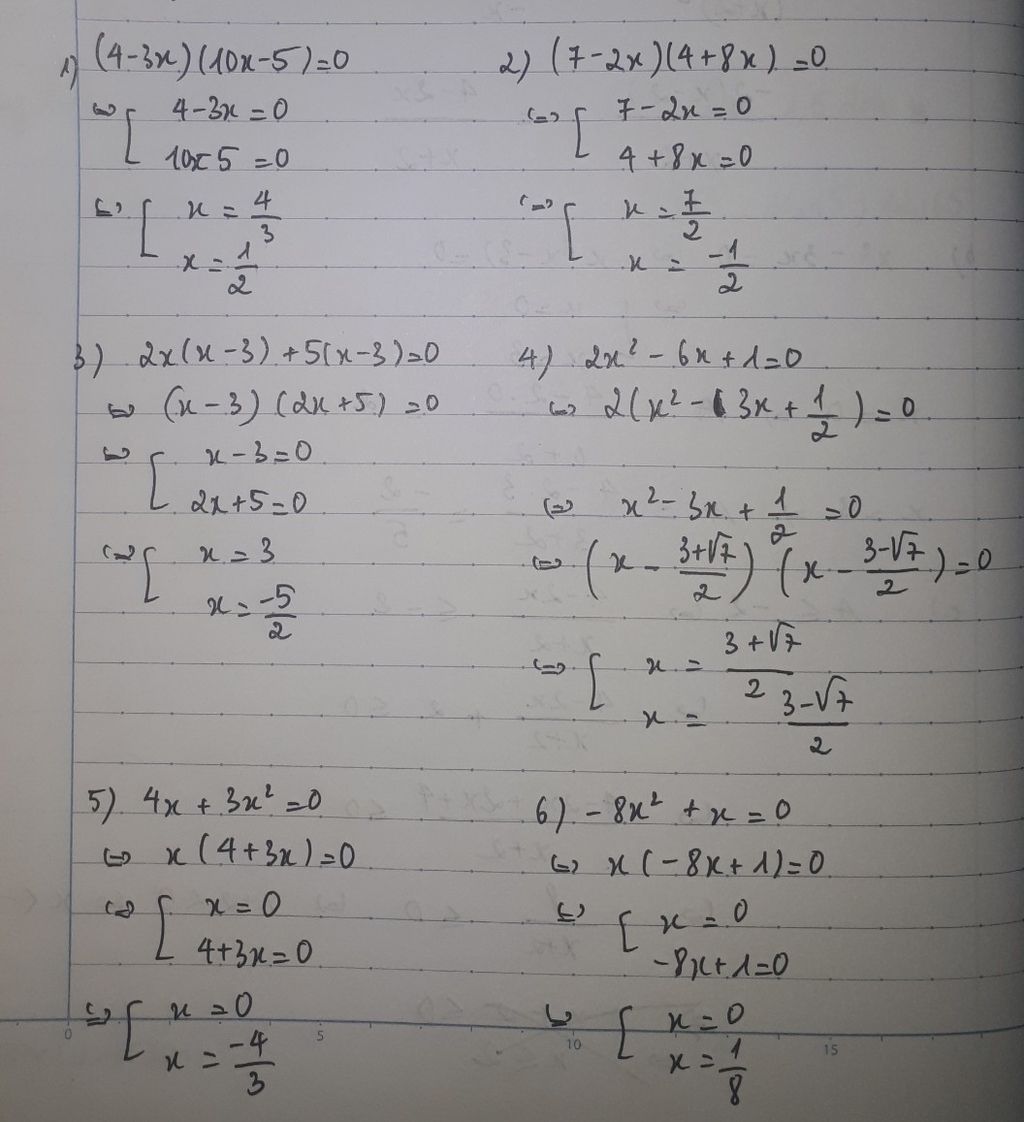 1) (4-3x)(10x-5)=0
⇔ [ 4-3x=0
10x-5=0
⇔ [ x = 4/3
x = 1/2
2) (7-2x)(4+8x)=0
⇔ [ 7-2x=0
4+8x=0
⇔ [ x = 7/2
x = -1/2
3) 2x(x-3)+5(x-3)=0
⇔ (x-3)(2x+5)=0
⇔ [ x-3=0
2x+5=0
⇔ [ x=3
x = -5/2
4) 2x²-6x+1=0
⇔ 2(x²-3x+1/2)=0
⇔ x²-3x+1/2=0
⇔ (x - (3+√7)/2)(x - (3-√7)/2)=0
⇔ [ x = (3+√7)/2
x = (3-√7)/2
5) 4x+3x²=0
⇔ x(4+3x)=0
⇔ [ x=0
4+3x=0
⇔ [ x=0
x = -4/3
6) -8x²+x=0
⇔ x(-8x+1)=0
⇔ [ x=0
-8x+1=0
⇔ [ x=0
x = 1/8
0 5 10 15